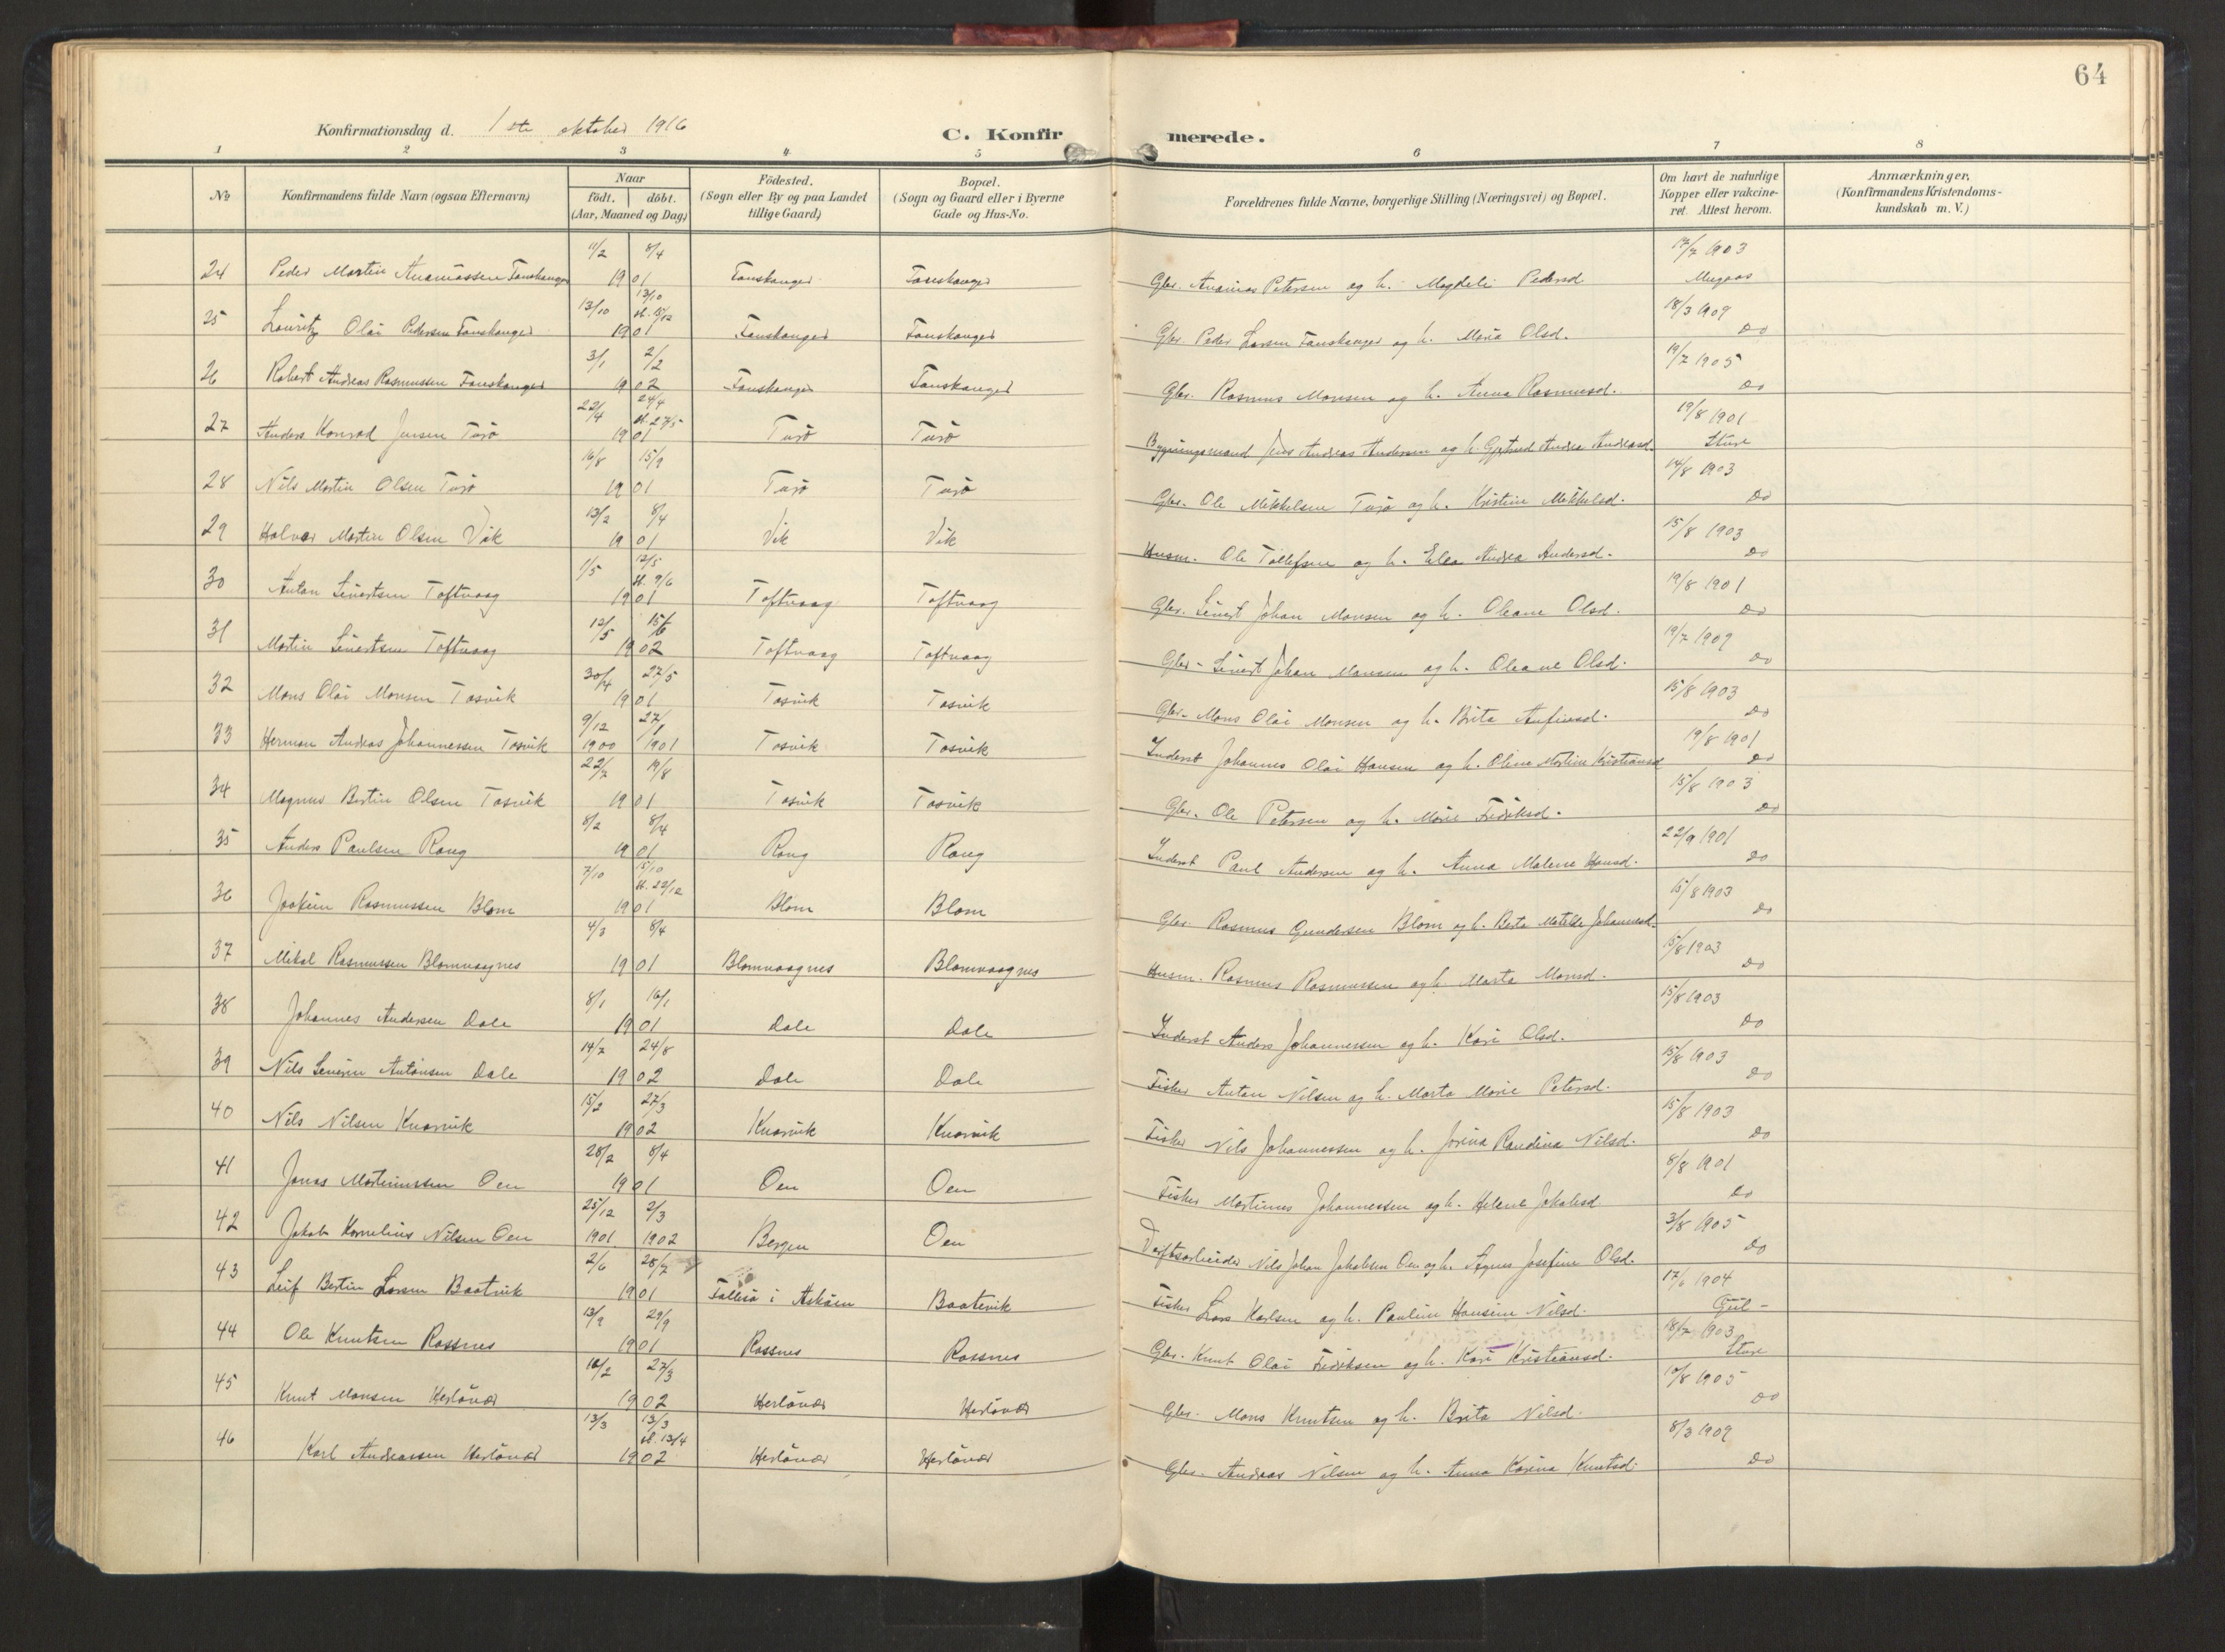 64
Konfirmationsdag d. 1ste oktober 1916
C. Konfirmerede.
1 2 3 4 5 6 7 8
No
Konfirmandens fulde Navn (ogsaa Efternavn)
Naar
födt. döbt.
(Aar, Maaned og Dag)
Födested.
(Sogn eller By og paa Landet
tillige Gaard)
Bopæl.
(Sogn og Gaard eller i Byerne
Gade og Hus-No.
Forældrenes fulde Navne, borgerlige Stilling (Næringsvei) og Bopæl.
Om havt de naturlige
Kopper eller vakcine-
ret. Attest herom.
Anmærkninger,
(Konfirmandens Kristendoms-
kundskab m. V.)
24 Peder Martin Ananiassen Tanskanger 11/2 8/4 1901 Tanskanger Tanskanger Gbr. Ananias Petersen og h. Magdeli Pedersd. 17/7 1903
25 Lauritz Olai Pedersen Tanskanger 13/10 13/10 st. 15/12 1901 Tanskanger Tanskanger Gbr. Peder Larsen Tanskanger og h. Maria Olsd. 18/3 1909 Do
26 Robert Andreas Rasmussen Tanskanger 3/1 2/2 1902 Tanskanger Tanskanger Gbr. Rasmus Monsen og h. Anna Rasmusd. 19/7 1905 Do
27 Anders Konrad Jensen Turö 22/4 24/4 st. 27/5 1901 Turö Turö Bygningsmand Jens Andreas Andersen og h. Gjertrud Andrea Andreasd. 19/8 1901 Sture
28 Nils Martin Olsen Turö 16/8 15/9 1901 Turö Turö Gbr. Ole Mikkelsen Turö og h. Kristine Mikkelsd. 14/8 1903 Do
29 Halvor Martin Olsen Vik 13/2 8/4 1901 Vik Vik Husm. Ole Tollefsen og h. Elen Andrea Andersd. 15/8 1903 Do
30 Anton Sivertsen Toftvaag 1/5 12/5 st. 9/6 1901 Toftvaag Toftvaag Gbr. Sivert Johan Monsen og h. Oleane Olsd. 19/8 1901 Do
31 Martin Sivertsen Toftvaag 12/5 15/6 1902 Toftvaag Toftvaag Gbr. Sivert Johan Monsen og h. Oleane Olsd. 19/7 1909 Do
32 Mons Olai Monsen Tosvik 30/4 27/5 1901 Tosvik Tosvik Gbr. Mons Olai Monsen og h. Brita Anfinsd. 15/8 1903 Do
33 Herman Andreas Johannessen Tosvik 9/12 1900 27/1 1901 Tosvik Tosvik Inderst Johannes Olai Hansen og h. Oline Martine Kristiansd 19/8 1901 Do
34 Magnus Bertin Olsen Tosvik 22/7 19/8 1901 Tosvik Tosvik Gbr. Ole Petersen og h. Marie Fredriksd. 15/8 1903 Do
35 Anders Paulsen Rong 8/2 8/4 1901 Rong Rong Inderst Paul Andersen og h. Anna Malene Hansd. 22/9 1901 Do
36 Joakim Rasmussen Blom 7/10 15/10 st. 29/12 1901 Blom Blom Gbr. Rasmus Gundersen Blom og h. Berta Matilde Johannesd. 15/8 1903 Do
37 Mikal Rasmussen Blomvaagnes 4/3 8/4 1901 Blomvaagnes Blomvaagnes Husm. Rasmus Rasmussen og h. Marta Monsd. 15/8 1903 Do
38 Johannes Andersen Dale 8/1 16/1 1901 Dale Dale Inderst Anders Johannessen og h. Kari Olsd. 15/8 1903 Do
39 Nils Severin Antonsen Dale 14/7 24/8 1902 Dale Dale Fisker Anton Nilsen og h. Marta Marie Petersd. 15/8 1903 Do
40 Nils Nilsen Knarvik 15/2 27/3 1902 Knarvik Knarvik Fisker Nils Johannessen og h. Jorina Randina Nilsd. 15/8 1903 Do
41 Jonas Martinussen Oen 28/2 8/4 1901 Oen Oen Fisker Martinus Johannessen og h. Helene Jakobsd. 8/8 1901 Do
42 Jakob Kornelius Nilsen Oen 25/12 1901 2/3 1902 Bergen Oen Verftsarbeider Nils Johan Jakobsen Oen og h. Agnes Josefine Olsd. 3/8 1905 Do
43 Leif Bertin Larsen Baatvik 2/6 28/7 1901 Follesö i Asköen Baatevik Fisker Lars Karlsen og h. Pauline Hansine Nilsd. 17/6 1904
44 Ole Knutsen Rossnes 13/9 29/9 1901 Rossnes Rossnes Gbr. Knut Olai Fredriksen og h. Kari Kristiansd. 18/7 1903 Sture
45 Knut Monsen Herlövær 10/2 27/3 1902 Herlövær Herlövær Gbr. Mons Knutsen og h. Brita Nilsd. 10/8 1905 Do
46 Karl Andreassen Herlövær 13/3 13/3 st. 13/4 1902 Herlövær Herlövær Gbr. Andreas Nilsen og h. Anna Karina Knutsd. 8/3 1909 Do